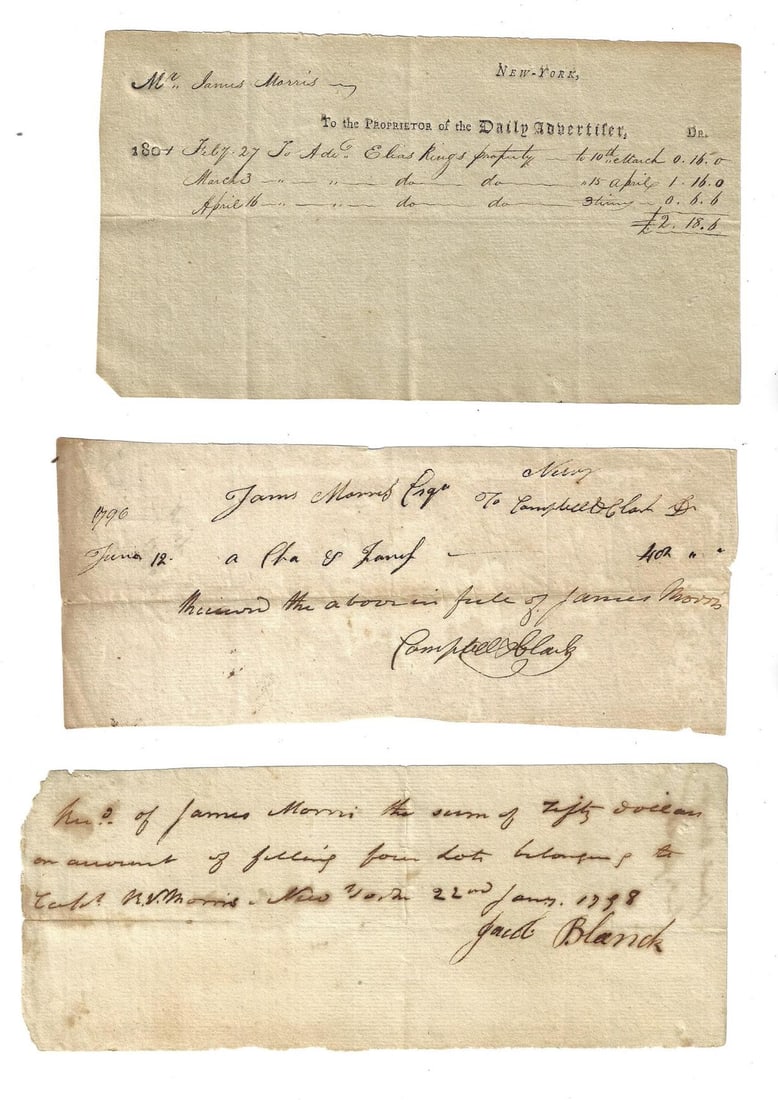 NEW-YORK,
Mr. James Morris
To the PROPRIETOR of the Daily Advertiser, DR.
1801 Feby. 27 To Adv. Elias Rings property to 10th March 0.16.0
March 3 " " do do " 15 April 1.16.0
April 16 " " do do 3 times 0.6.6
£2.18.6
James Morris Esqr
To Campbell & Clark Dr
1796
June 12. a
received the above in full of James Morris
Campbell & Clark
Recd. of James Morris the sum of Fifty dollars
on account of filling four Lots belonging to
Capt. R.V. Morris. New York 22nd Jany. 1798
Jacob Blanck